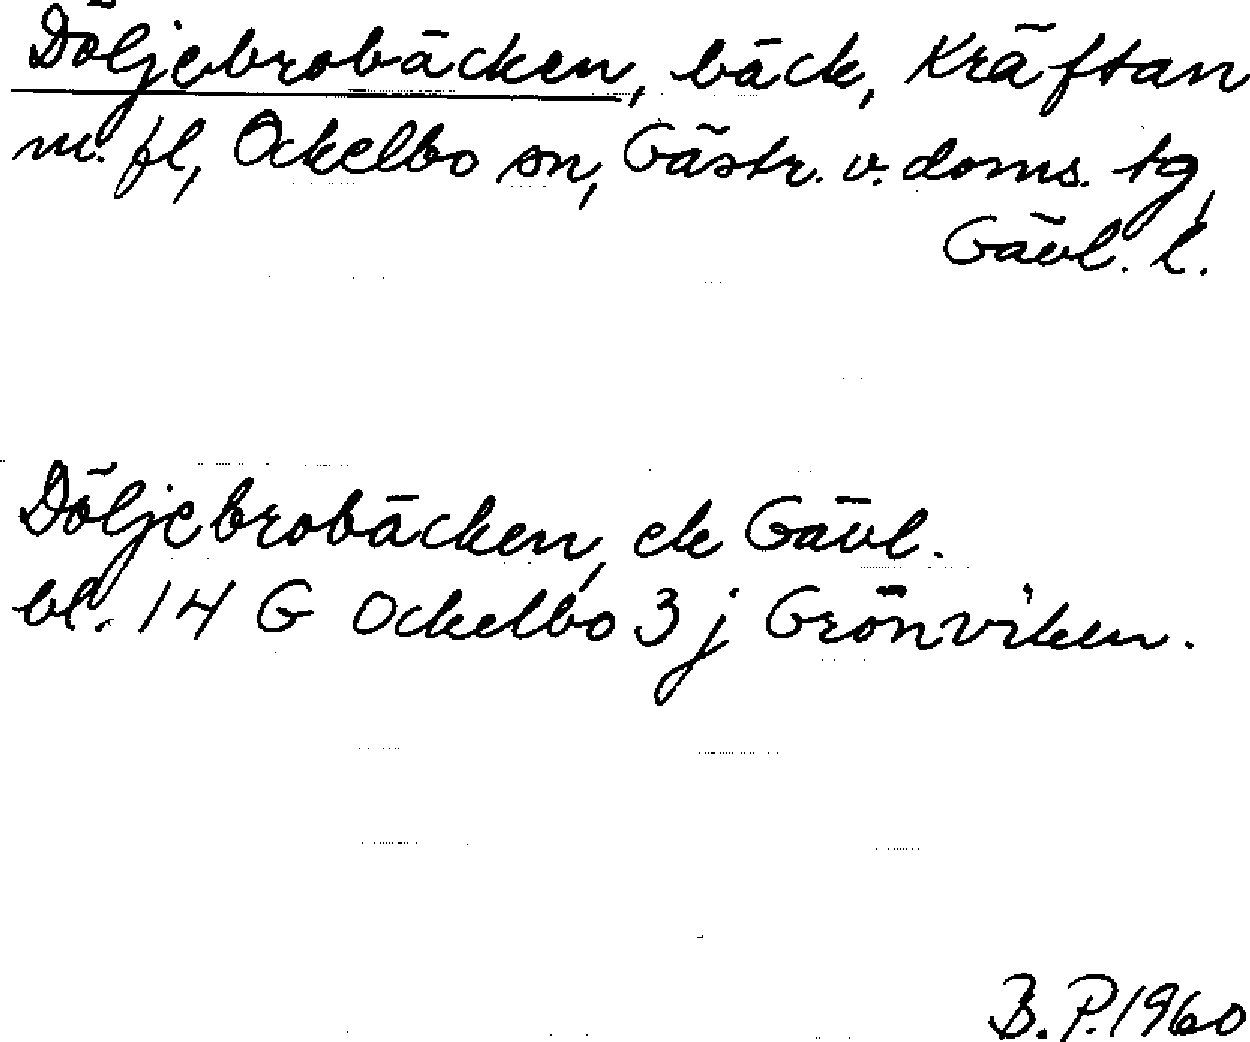 Döljebrobäcken, bäck, Kräftan
m. fl, Ockelbo sn, Gästr. v. doms. tg,
Gävl. l.
Döljebrobäcken, ek Gävl.
bl. 14 G Ockelbo 3 j Grönviken.
B. P. 1960